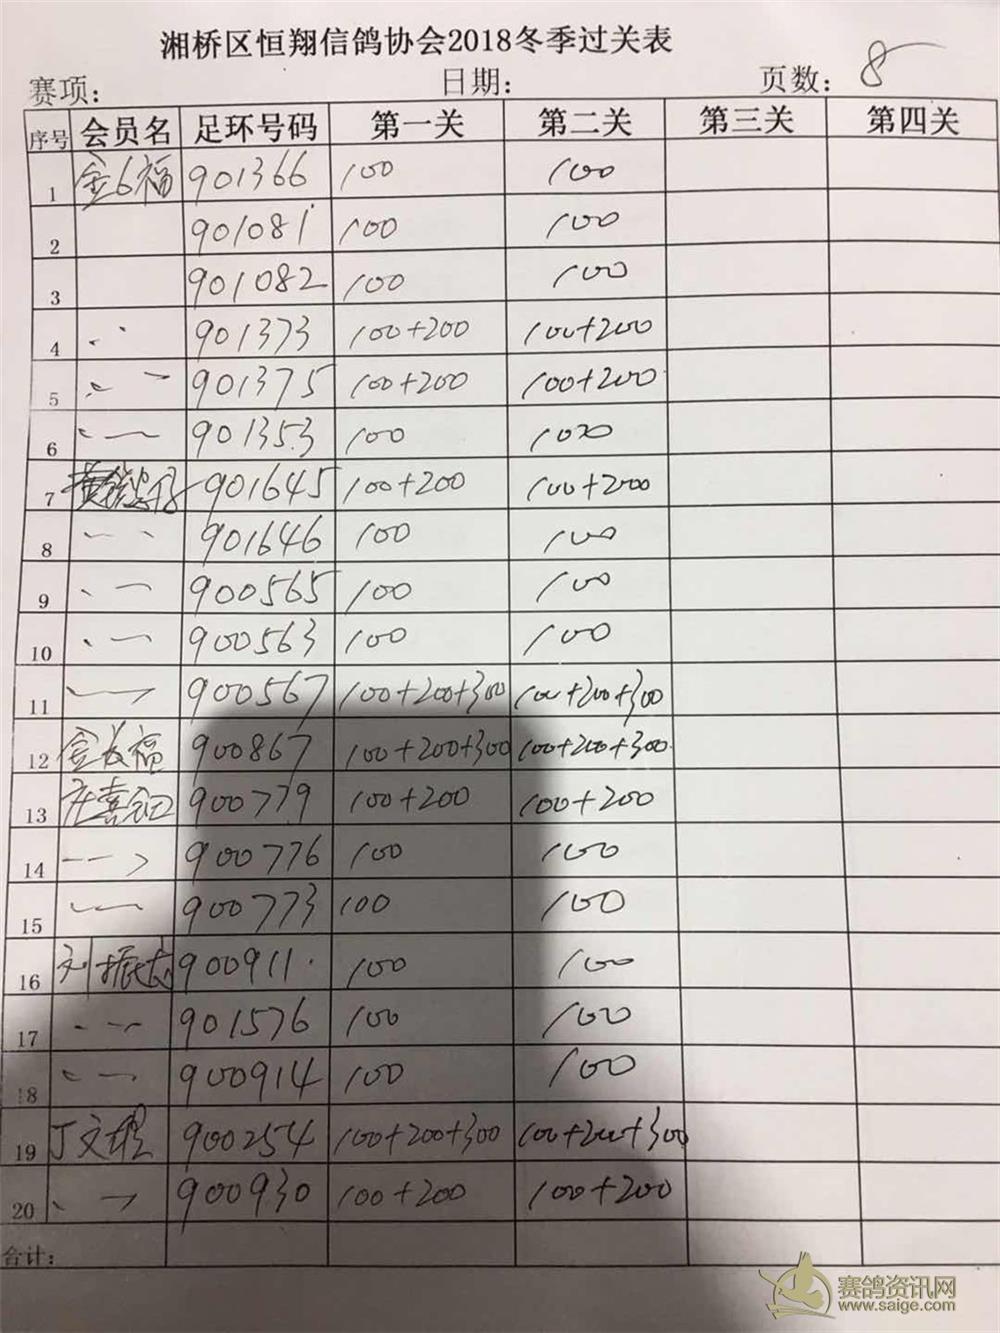 湘桥区恒翔信鸽协会2018冬季过关表
赛项: 日期: 页数: 8
序号 会员名 足环号码 第一关 第二关 第三关 第四关
1 金6福 901366 100 100
2 901081 100 100
3 901082 100 100
4 901373 100+200 100+200
5 901375 100+200 100+200
6 901353 100 100
7 901645 100+200 100+200
8 901646 100 100
9 900565 100 100
10 900563 100 100
11 900567 100+200+300 100+200+300
12 金长福 900867 100+200+300 100+200+300
13 900779 100+200 100+200
14 900776 100 100
15 900773 100 100
16 刘振忠 900911 100 100
17 901576 100 100
18 900914 100 100
19 丁文 900254 100+200+300 100+200+300
20 900930 100+200 100+200
合计:
赛鸽资讯网
www.saige.com